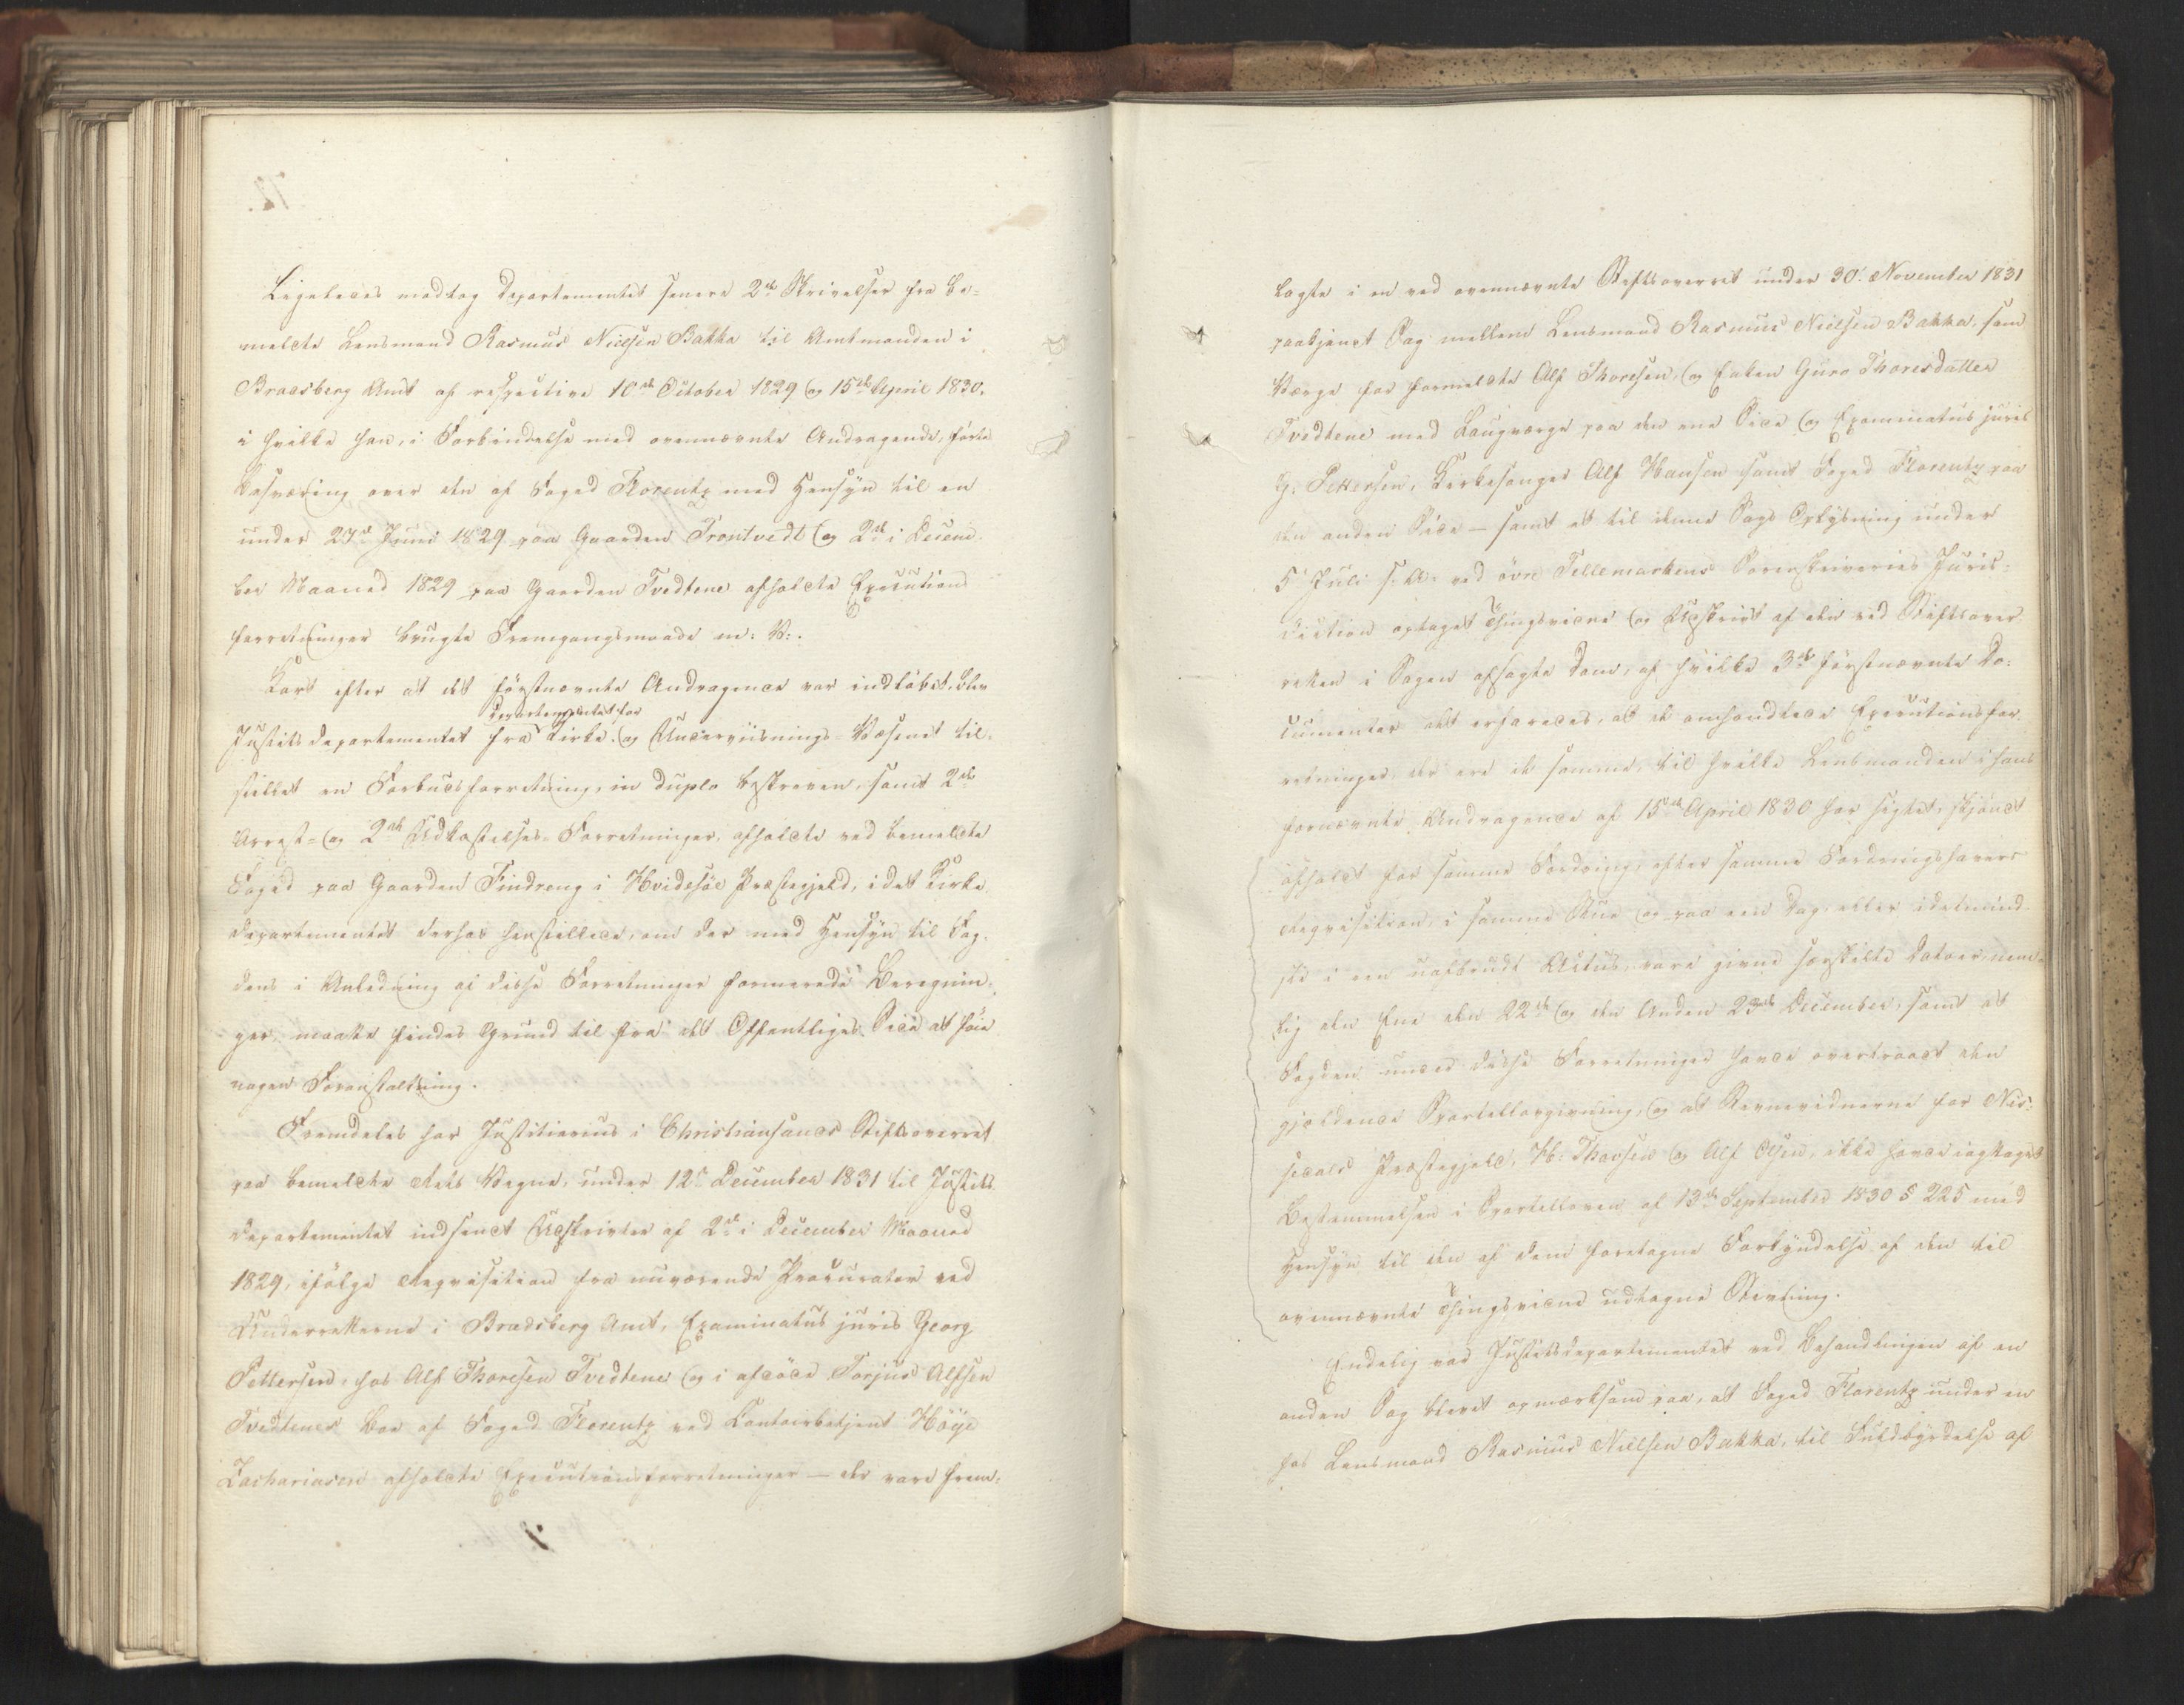 Ligeledes modtog Departementet senere 2de Skrivelser fra be-
meldte Lensmand Rasmus Nielsen Bakka til Amtmanden i
Bradsberg Amt af respective 10de October 1829 og 15de April 1830,
i hvilke han, i Forbindelse med ovennævnte Andragende,førte
Besværing over den af Foged Florentz med Hensyn til en
under 27de Juni 1829 paa Gaarden Trontvedt og 2de i Decem-
ber Maaned 1829 paa Gaarden Tvedtene afholdte Executions
forretninger brugte Fremgangsmaade m: V:.
Kort efter at det førstnævnte Andragende var indløbet, blev
Departementet for
Justitsdepartementet fra Kirke- og Underviisnings-Væsenet til-
stillet en Forbudsforretning, in duplo beskreven, samt 2de
Arrest- og 2de Udkastelses-Forretninger, afholdte ved bemeldte
Foged paa Gaarden Findreng i Hvidesøe Præstegjeld, idet Kirke-
departementet derhos henstillede, om der med Hensyn til Fog-
dens i Anledning af disse Forretninger formerede Beregnin-
ger, maatte findes Grund til fra det Offentliges Side at føie
nogen Foranstaltning.
Fremdeles har Justitiarius i Christiansands Stiftsoverret
paa bemeldte Rets Vegne, under 12te December 1831 til Justits
departementet indsendt Udskrivter af 2de i December Maaned
1829, ifølge Reqvisition fra nuværende Procurator ved
Underretterne i Bradsberg Amt, Examinatus juris Georg
Pettersen, hos Alf Thoresen Tvedtene og i afdøde Torjus Alfsen
Tvedtenes Boe af Foged Florentz ved Contoirbetjent Høye
Zachariasen afholdte Executionsforretninger — der vare frem-
lagte i en ved ovennævnte Stiftsoverret under 30. November 1831
paakjendt Sag mellem Lensmand Rasmus Nielsen Bakka, som
Værge for formeldte Alf Thoresen, og Enken Guro Thoresdatter
Tvedtene med Laugværge paa den ene Side og Examinatus juris
G. Pettersen, Kirkesanger Alf Hansen samt Foged Florentz paa
den anden Side — samt et til denne Sags Oplysning under
5. Juli s: A: ved øvre Tellemarkens Sorenskriveries Juris-
diction optaget Thingsvidne og Udskrivt af den ved Stiftsover-
retten i Sagen afsagte Dom, af hvilke 3de førstnævnte Do-
cumenter det erfaredes, at de omhandlede Executionsfor-
retninger, der ere de samme, til hvilke Lensmanden i hans
fornævnte Andragende af 15de April 1830 har sigtet, skjøndt
afholdt for samme Fordring, efter samme Fordringshavers
Reqvisition, i samme Stue og paa een Dag, eller idetmind-
ste i een uafbrudt Actus, vare givne særskilte Datoer, nem-
lig den Ene den 22de og den Anden 23de December, samt at
Fogden under disse Forretninger havde overtraadt den
gjældende Sportellovgivning, og at Stevnevidnerne for Nis-
sedals Præstegjeld, H. Thorsen og Alf Olsen, ikke havde iagttaget
Bestemmelsen i Sportelloven af 13de September 1830 § 225 med
Hensyn til den af dem foretagne Forkyndelse af den til
ovennævnte Thingsvidne udtagne Stevning.
Endelig var Justitsdepartementet ved Behandlingen af en
anden Sag blevet opmærksom paa, at Foged Florentz under en
hos Lensmand Rasmus Nielsen Bakka, til Fuldbyrdelse af